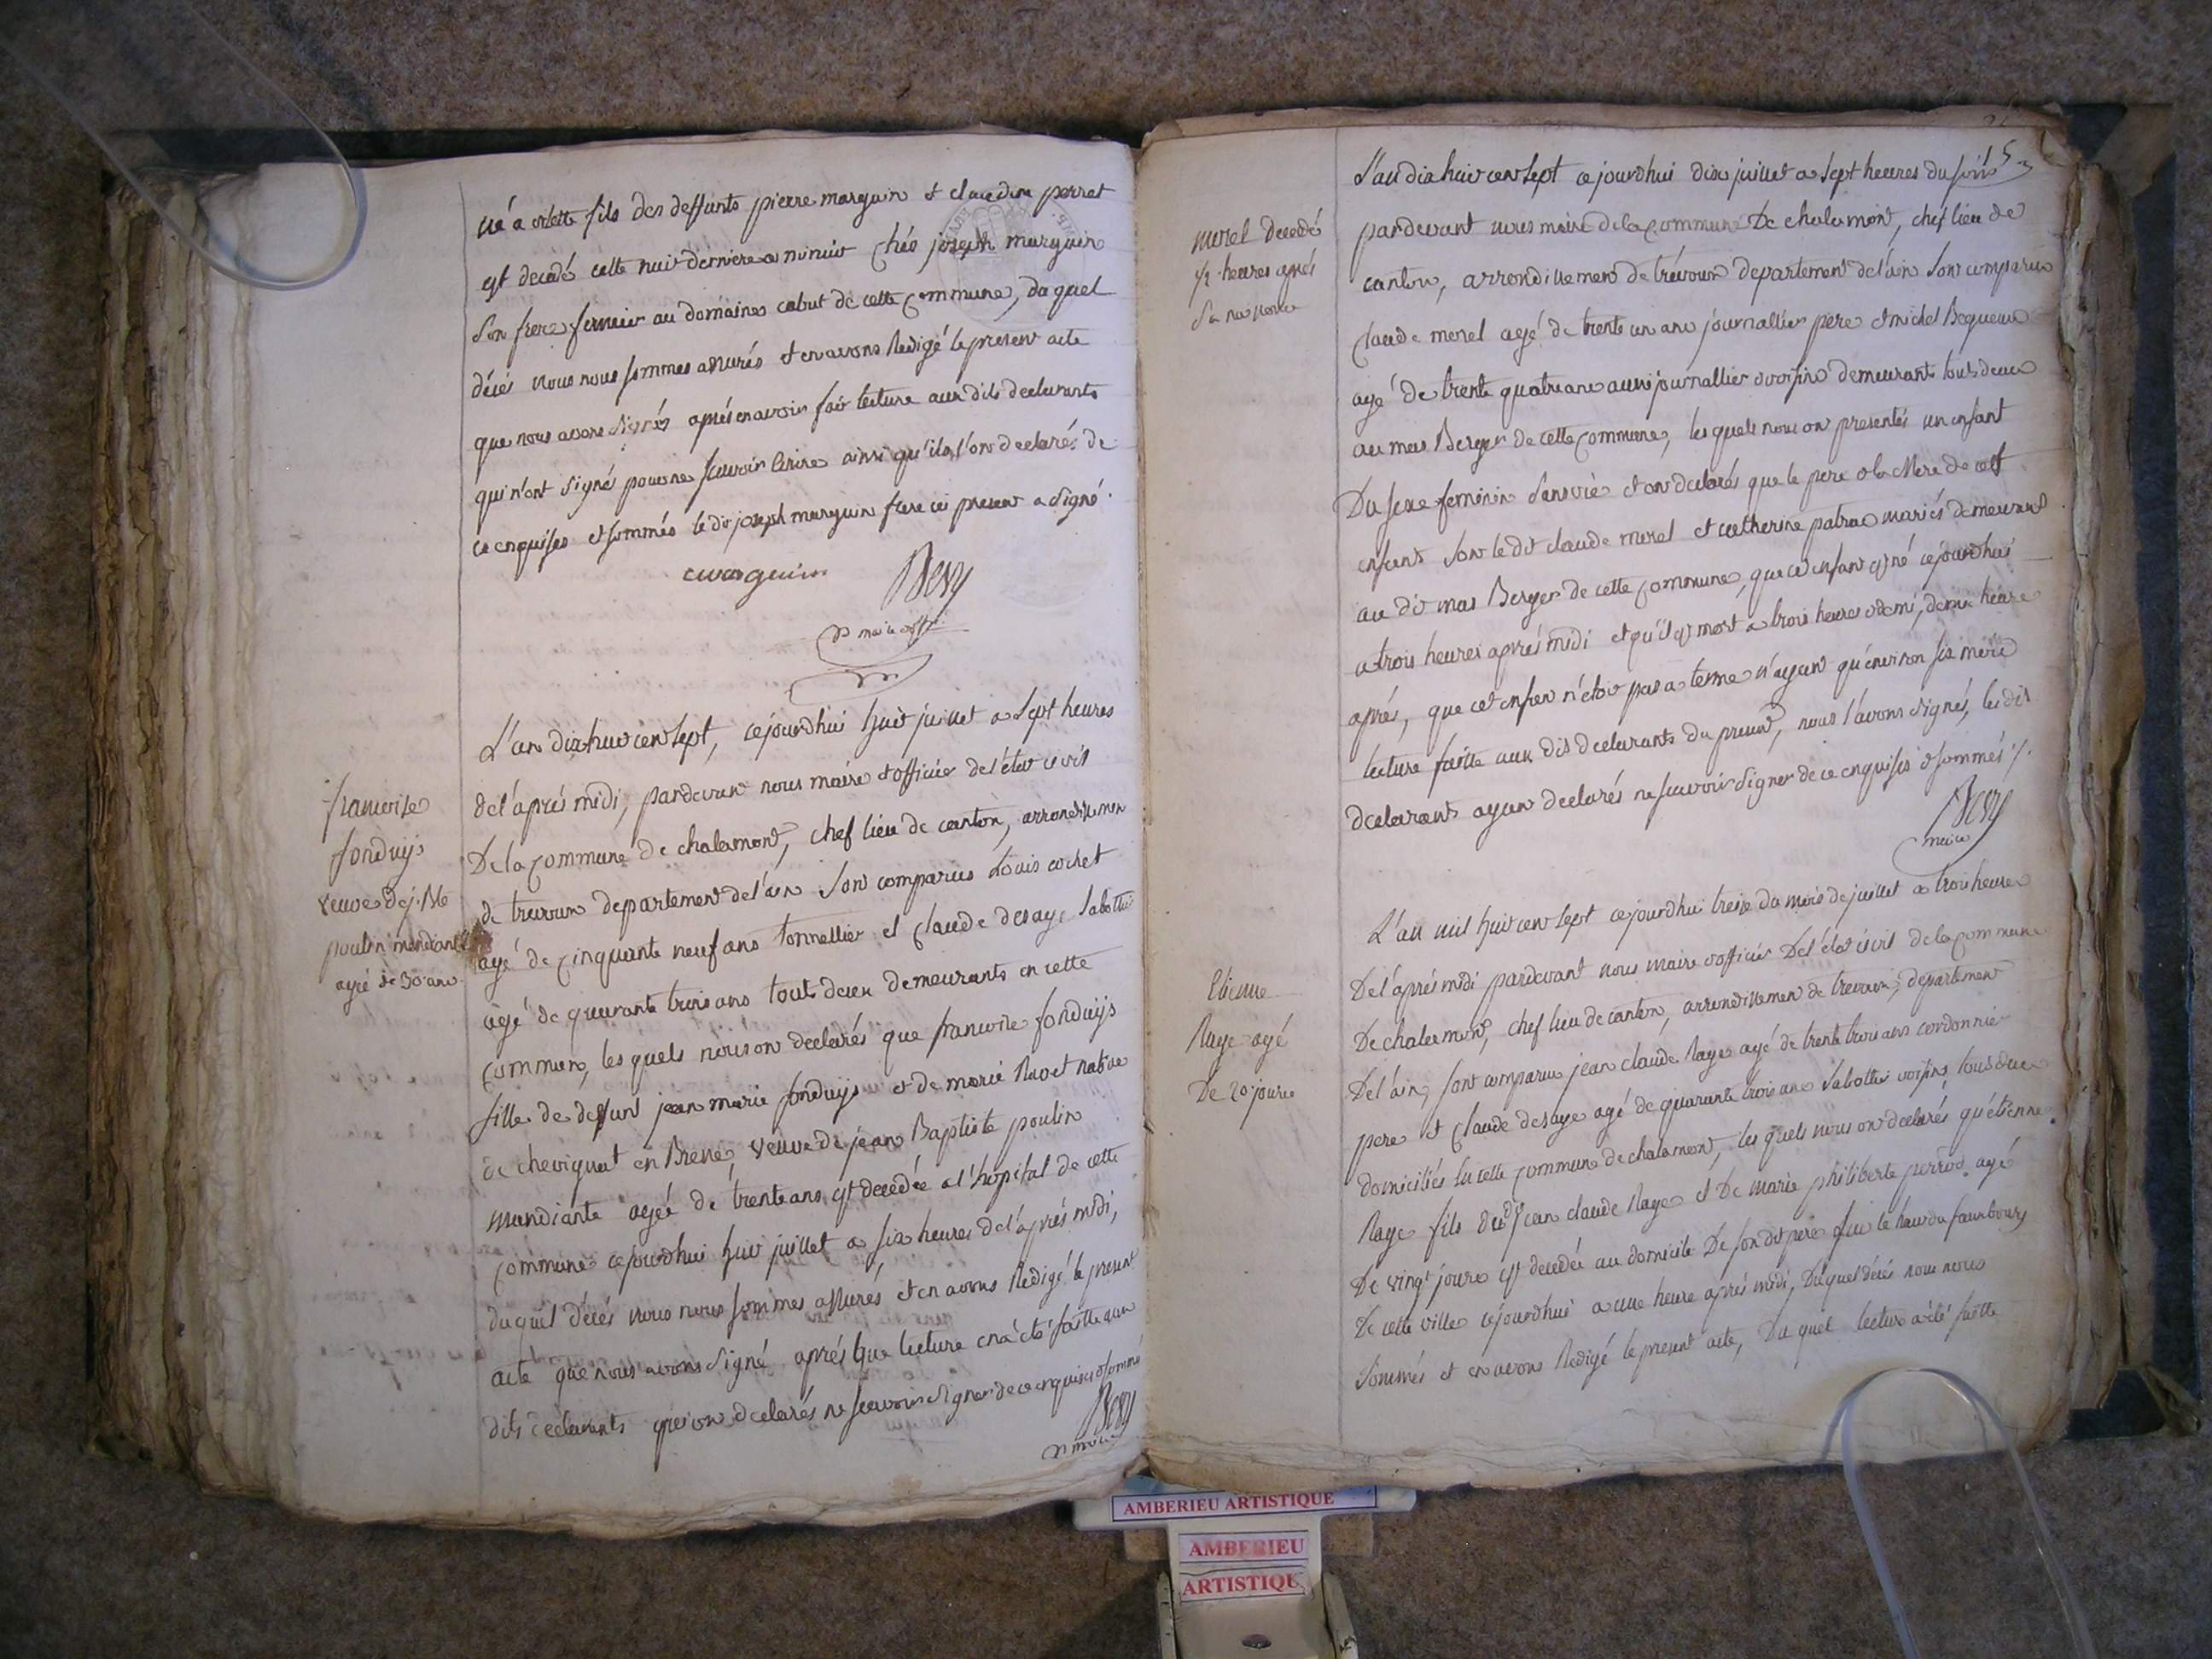 né a vilette fils des deffunts pierre marguin et claudine perret
est decedé cette nuit derniere a minuit chés joseph marguin
son frere fermier au domaine cabut de cette commune, du quel
décés nous nous sommes assurés et en avons Redigé le present acte
que nous avons signés aprés en avoir fait lecture aux dits declarants
qui n'ont signés pour ne scavoir Ecrire ainsi qu'ils l'ont declarés de
ce enquises et sommés le dit joseph marguin frere ici present a signé.
marguin
Bery
maire
L'an dix huit cent sept, cejourdhui huit juillet a sept heures
de l'aprés midi, pardevant nous maire et officier de l'état civil
De la commune de chalamont, chef lieu de canton, arrondissemen
de trevoux departement de l'ain sont comparus Louis cochet
agé de cinquante neuf ans tonnellier et claude desaye sabottié
agé de quarante trois ans touts deux demeurants en cette
commune, les quels nous on declarés que francoise fonduijs
fille de deffunt jean marie fonduijs et de marie Ravet native
de chevignat en Bresse, veuve de jean Baptiste poulin
mandiante agée de trente ans, est decedée a l'hôpital de cette
commune cejourdhui huit juillet a six heures de l'aprés midi,
du quel décés nous nous sommes assurés et en avons Redigé le present
acte que nous avons signé aprés que lecture en a été faitte aux
dits declarants qui ont declarés ne scavoir signer de ce enquises et sommés
Bery
maire
francoise
fonduijs
veuve de j. Bte
poulin mandiante
agée de 30 ans
15
L'an dix huit cent sept cejourdhui dix juillet a sept heures du soir
pardevant nous maire de la commune De chalamont, chef lieu de
canton, arrondissement de trévoux departement de l'ain sont comparus
claude merel agé de trente un ans journallier pere et michel Bequeux
agé de trente quatre ans aussi journallier voisin demeurants touts deux
au mas Berger de cette commune, les quels nous on presentés un enfant
Du sexe feminin sans vie et ont declarés que le pere et la Mere de cet
enfant sont le dit claude merel et catherine patrac mariés demeurant
au dit mas Berger de cette commune, que cet enfant est né cejourdhui
a trois heures aprés midi et qu'il est mort a trois heures et demi, demie heure
aprés, que cet enfan n'étoit pas a terme n'ayant qu'environ six mois
lecture faitte aux dis declarants du present, nous l'avons signés, les dis
declarants ayant declarés ne scavoir signer de ce enquises et sommés
Bery
maire
merel decedé
1/2 heures aprés
sa naissance
L'an mil huit cent sept cejourdhui treize du mois de juillet a trois heures
De l'aprés midi pardevant nous maire et officier De l'état civil de la commune
De chalamont, chef lieu de canton, arrondissement de trevoux, departement
De l'ain, sont comparus jean claude Raye agé de trente trois ans cordonnier
pere et claude desaye agé de quarante trois ans sabottié voisins, tous deux
domiciliés en cette commune de chalamont, les quels nous ont declarés qu'etienne
Raye fils du dt jean claude Raye et De marie philiberte perrod agé
De vingt jours est decedée au domicile De son dit pere sur le haut du faubourg
De cette ville cejourdhui a une heure aprés midi, Du quel décés nous nous
sommés et en avons Redigé le present acte, Du quel lecture a été faitte
Etienne
Raye agé
De 20 jours
AMBERIEU ARTISTIQUE
AMBERIEU
ARTISTIQUE